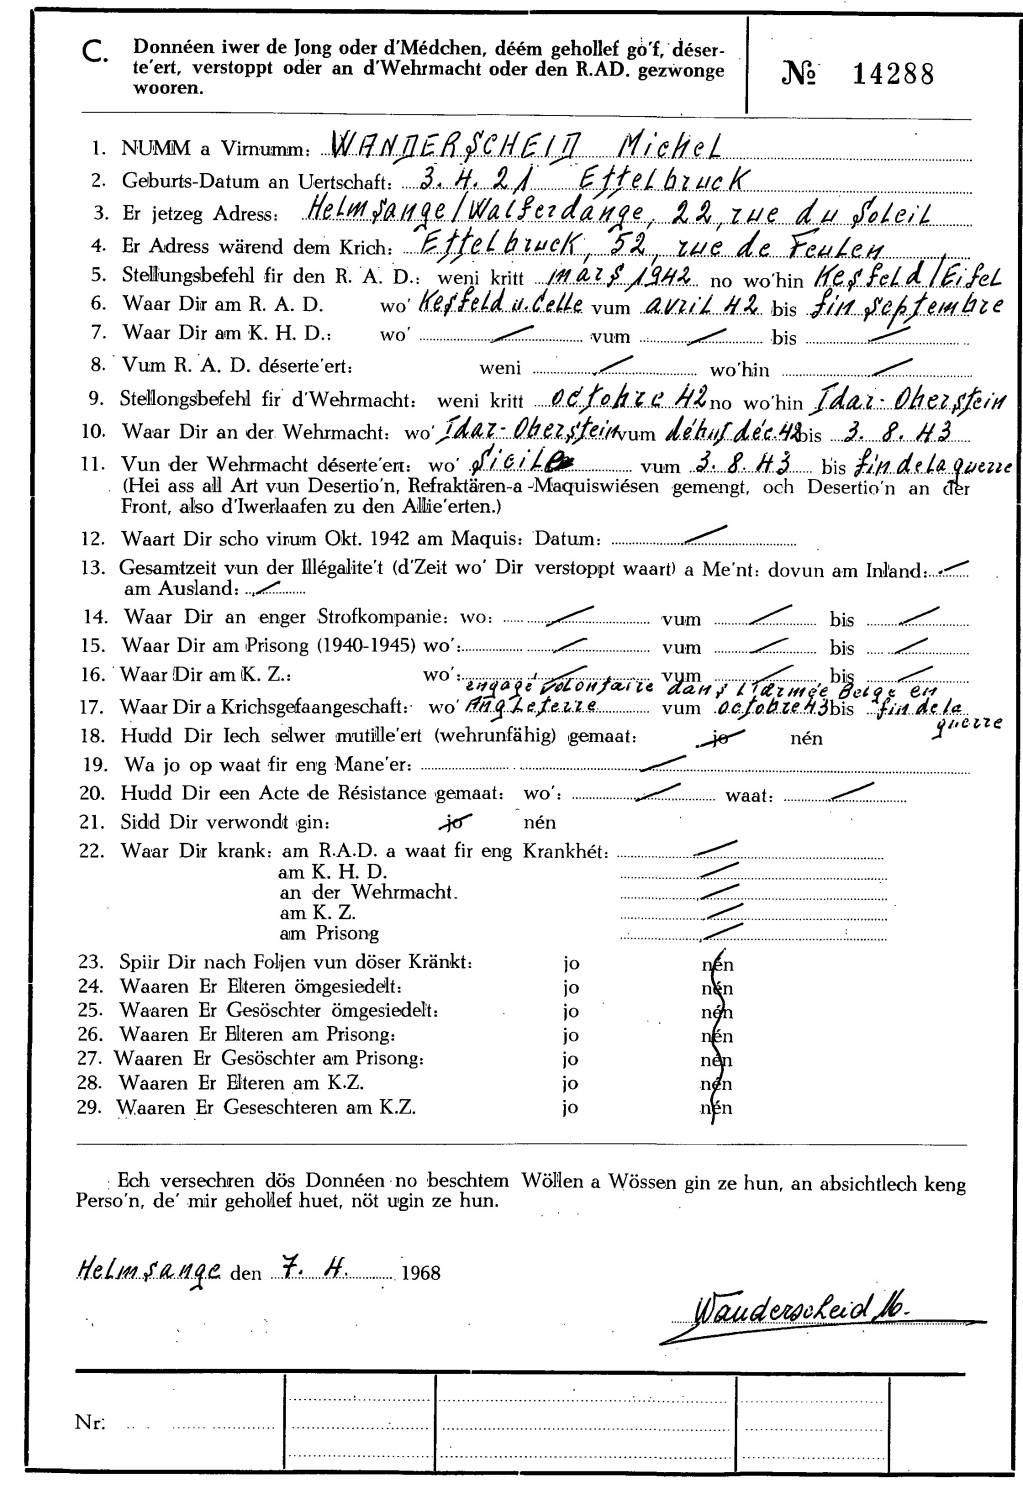 C. Donnéen iwer de Jong oder d'Médchen, déém gehollef go'f, déser-
te'ert, verstoppt oder an d'Wehrmacht oder den R.AD. gezwonge
wooren.
№ 14288
1. NUMM a Virnumm: WANDERSCHEID Michel
2. Geburts-Datum an Uertschaft: 3. 4. 21 Ettelbruck
3. Er jetzeg Adress: Helmsange/Walferdange, 22, rue du Soleil
4. Er Adress wärend dem Krich: Ettelbruck, 52, rue de Feulen
5. Stellungsbefehl fir den R. A. D.: weni kritt mars 1942 no wo'hin Kesfeld/Eifel
6. Waar Dir am R. A. D. wo' Kesfeld u. Celle vum avril 42 bis fin septembre
7. Waar Dir am K. H. D.: wo' vum bis
8. Vum R. A. D. déserte'ert: weni wo'hin
9. Stellongsbefehl fir d'Wehrmacht: weni kritt octobre 42 no wo'hin Idar-Oberstein
10. Waar Dir an der Wehrmacht: wo' Idar-Oberstein vum début déc. 42 bis 3. 8. 43
11. Vun der Wehrmacht déserte'ert: wo' Sicile vum 3. 8. 43 bis fin de la guerre
(Hei ass all Art vun Desertio'n, Refraktären-a -Maquiswiésen gemengt, och Desertio'n an der
Front, also d'Iwerlaafen zu den Allie'erten.)
12. Waart Dir scho virum Okt. 1942 am Maquis: Datum:
13. Gesamtzeit vun der Illégalite't (d'Zeit wo' Dir verstoppt waart) a Me'nt: dovun am Inland:
am Ausland:
14. Waar Dir an enger Strofkompanie: wo: vum bis
15. Waar Dir am Prisong (1940-1945) wo': vum bis
16. Waar Dir am K. Z.: wo': vum bis
engagé volontaire dans l'armée Belge en
17. Waar Dir a Krichsgefaangeschaft: wo' Angleterre vum octobre 43 bis fin de la
guerre
18. Hudd Dir Iech selwer mutille'ert (wehrunfähig) gemaat: jo nén
19. Wa jo op waat fir eng Mane'er:
20. Hudd Dir een Acte de Résistance gemaat: wo': waat:
21. Sidd Dir verwondt gin: jo nén
22. Waar Dir krank: am R.A.D. a waat fir eng Krankhét:
am K. H. D.
an der Wehrmacht.
am K. Z.
am Prisong
23. Spiir Dir nach Foljen vun döser Kränkt: jo nén
24. Waaren Er Elteren ömgesiedelt: jo nén
25. Waaren Er Gesöschter ömgesiedelt: jo nén
26. Waaren Er Elteren am Prisong: jo nén
27. Waaren Er Gesöschter am Prisong: jo nén
28. Waaren Er Elteren am K.Z. jo nén
29. Waaren Er Geseschteren am K.Z. jo nén
Ech versechren dös Donnéen no beschtem Wöllen a Wössen gin ze hun, an absichtlech keng
Perso'n, de' mir gehollef huet, nöt ugin ze hun.
Helmsange den 7. 4. 1968
Wanderscheid M.
Nr: